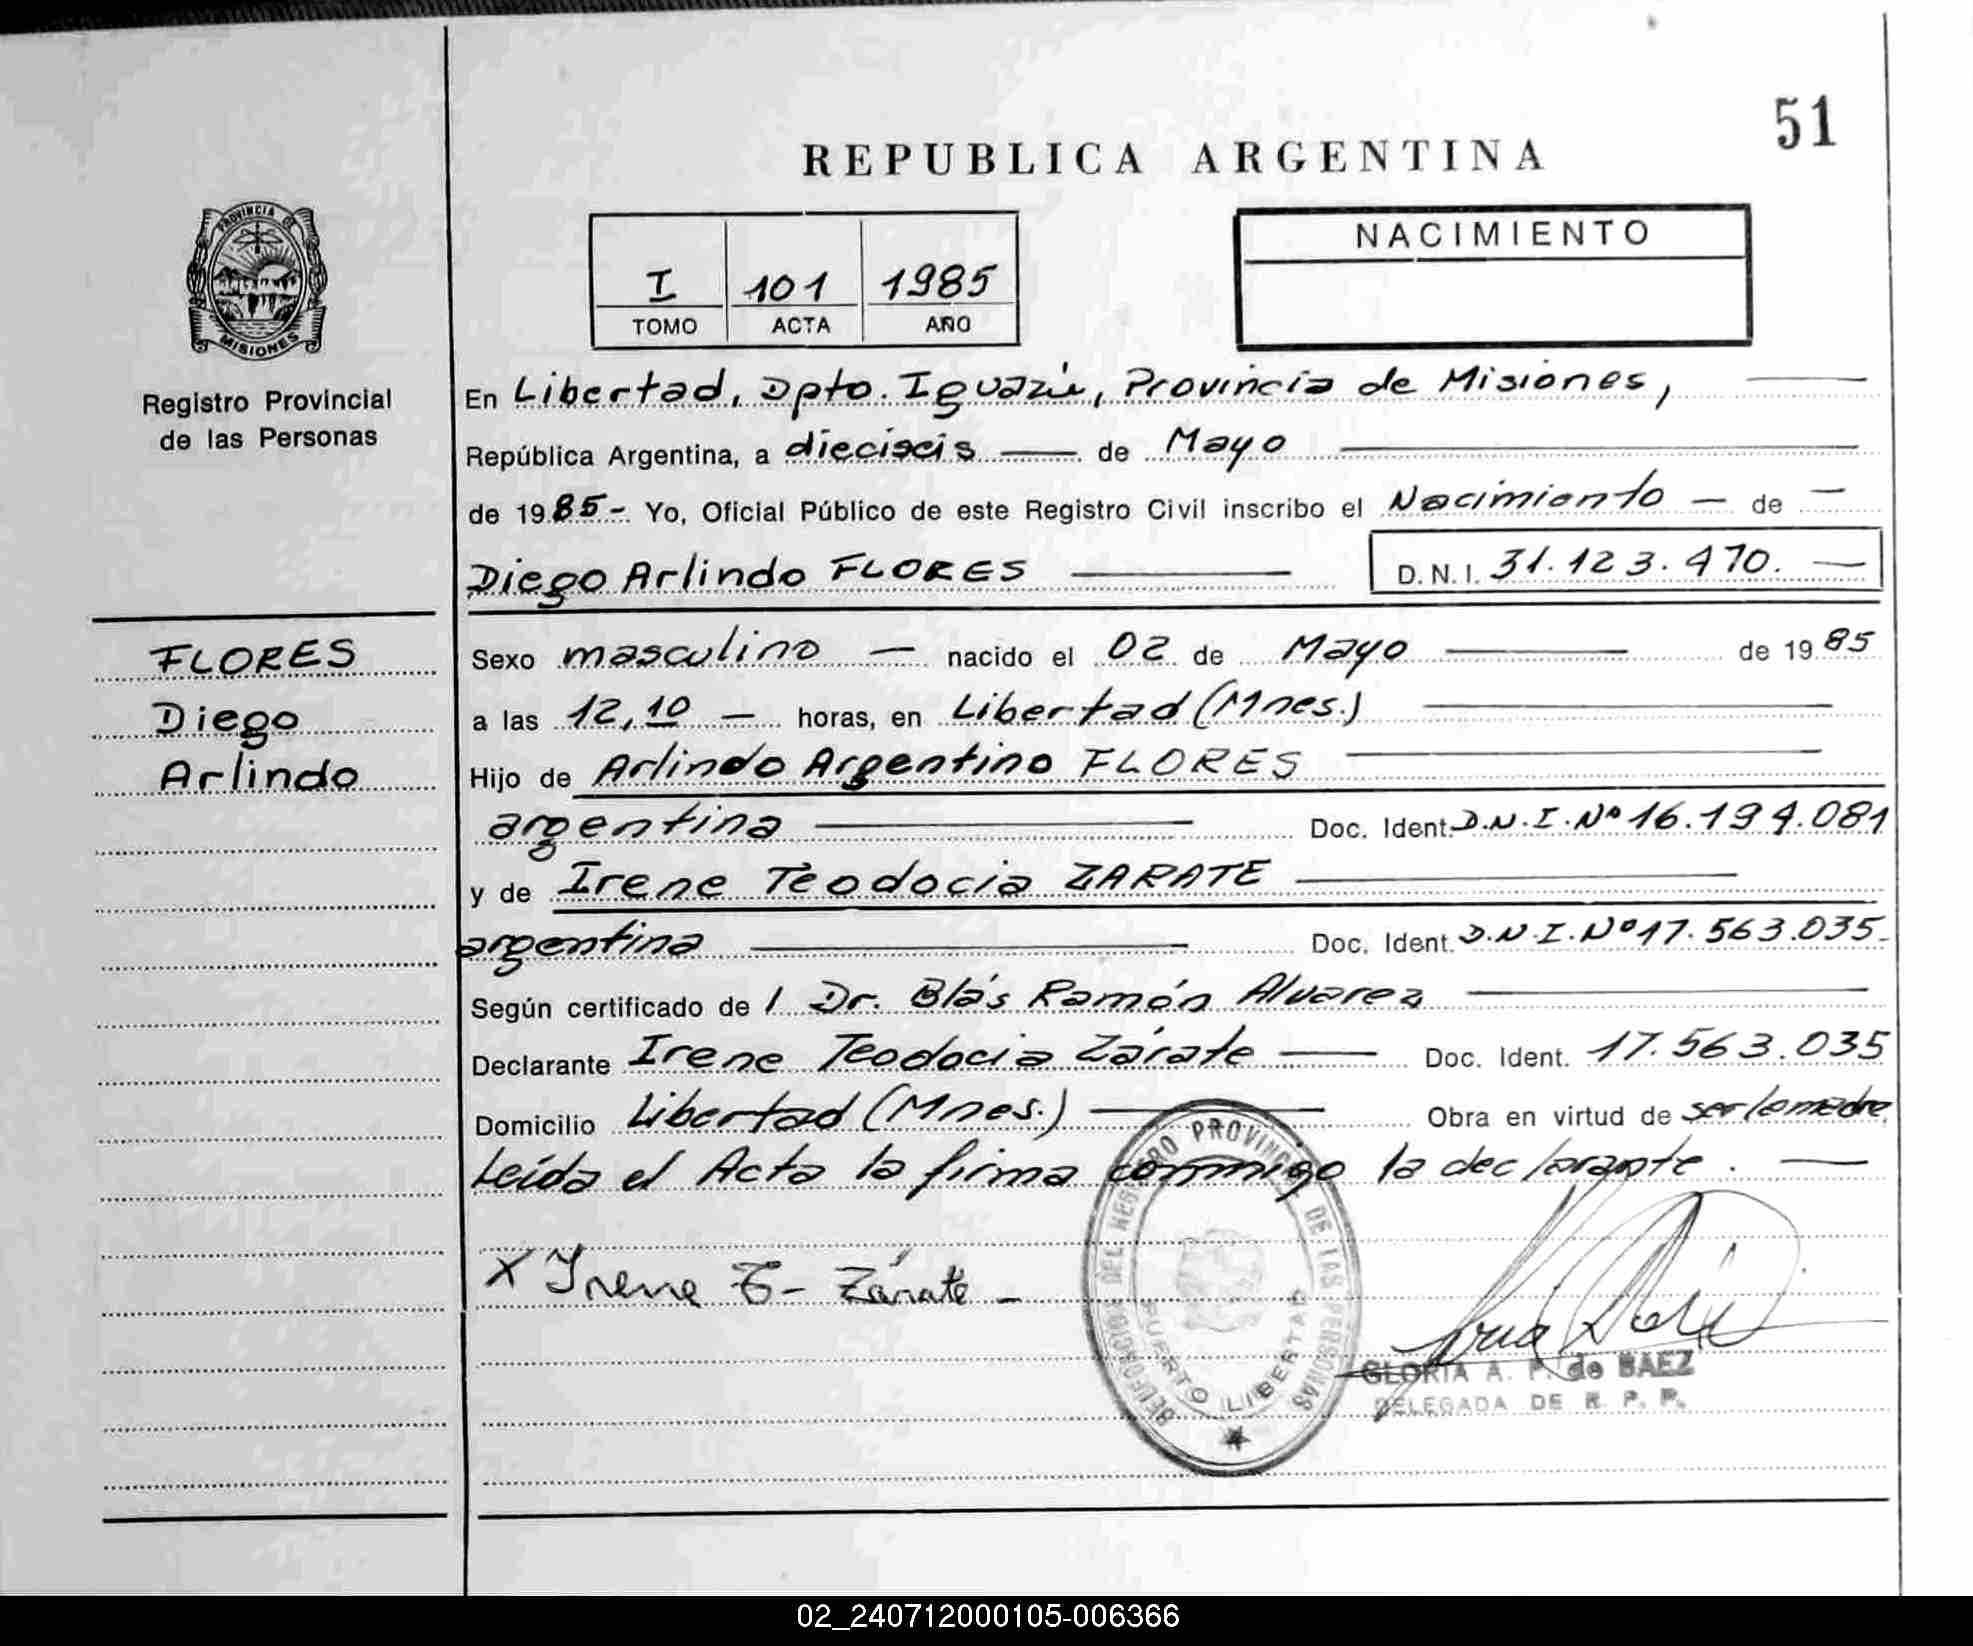 51
REPUBLICA ARGENTINA
PROVINCIA DE
MISIONES
Registro Provincial
de las Personas
I 101 1985
TOMO ACTA AÑO
NACIMIENTO
En Libertad, Dpto. Iguazú, Provincia de Misiones,
República Argentina, a dieciseis de Mayo
de 1985- Yo, Oficial Público de este Registro Civil inscribo el Nacimiento de
Diego Arlindo FLORES D.N.I. 31.123.470.
FLORES
Diego
Arlindo
Sexo masculino nacido el 02 de Mayo de 1985
a las 12,10 horas, en Libertad (Mnes.)
Hijo de Arlindo Argentino FLORES
argentina Doc. Ident. D.N.I. Nº 16.194.081
y de Irene Teodocia ZARATE
argentina Doc. Ident. D.N.I. Nº 17.563.035-
Según certificado de / Dr. Blás Ramón Alvarez
Declarante Irene Teodocia Zárate Doc. Ident. 17.563.035
Domicilio Libertad (Mnes.) Obra en virtud de ser la madre
Leída el Acta la firma conmigo la declarante.
X Irene T- Zárate -
DEL REGISTRO PROVINCIAL DE LAS PERSONAS
PUERTO LIBERTAD
GLORIA A. P. de BAEZ
DELEGADA DE R. P. P.
02_240712000105-006366